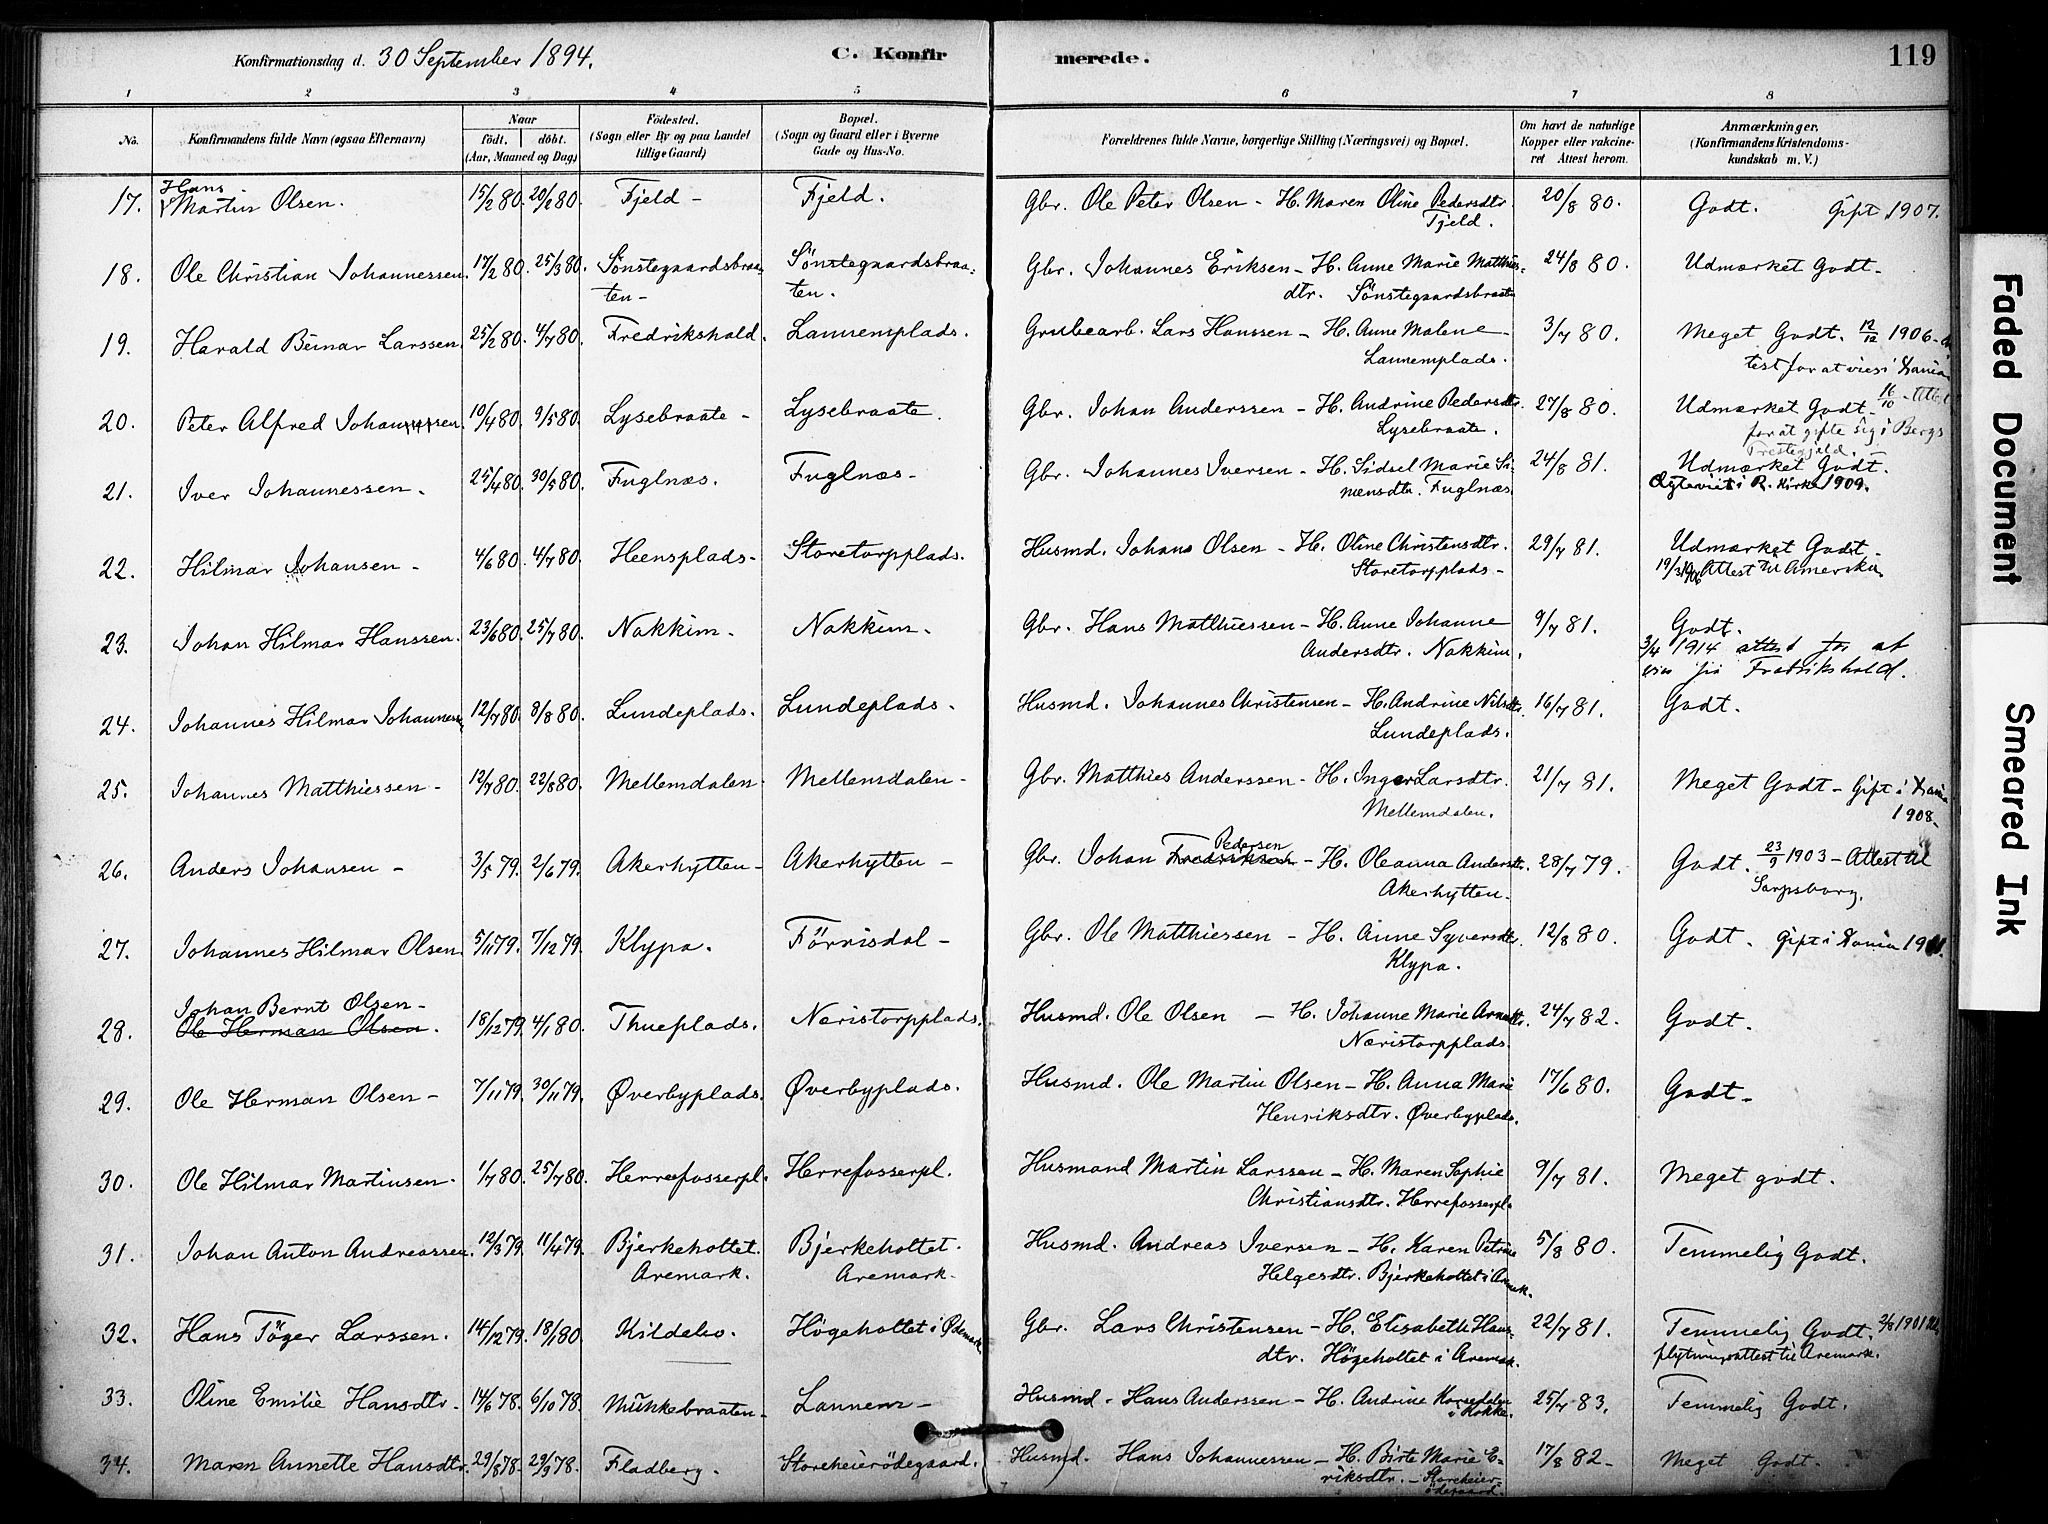 Konfirmationsdag d. 30 September 1894. C. Konfirmerede. 119
1 2 3 4 5 6 7 8
No. Konfirmandens fulde Navn (ogsaa Efternavn) Naar født, døbt. (Aar, Maaned og Dag) Fødested. (Sogn eller By og paa Landet tillige Gaard) Bopæl. (Sogn og Gaard eller i Byerne Gade og Hus-No. Forældrenes fulde Navne, borgerlige Stilling (Næringsvei) og Bopæl. Om havt de naturlige Kopper eller vakcineret Attest herom. Anmærkninger. (Konfirmandens Kristendomskundskab m. V.)
17. Hans Martin Olsen. 15/2 80. 20/2 80. Fjeld - Fjeld. Gbr. Ole Peter Olsen - H. Maren Oline Pedersdtr. 20/8 80. Godt. Gift 1907.
Fjeld.
18. Ole Christian Johannessen. 17/2 80. 25/3 80. Sönstegaardsbraa- Sönstegaardsbraa- Gbr. Johannes Eriksen - H. Anne Marie Matthies- 24/8 80. Udmærket Godt -
ten - ten. dtr. Sönstegaardsbraaten
19. Harald Beinar Larssen. 25/2 80. 4/7 80. Fredrikshald. Lannemplads. Grubearb. Lars Hanssen - H. Anne Malene - 3/7 80. Meget Godt. 12/12 1906 - At
Lannemplads. test for at vies i Xania
20. Peter Alfred Johannessen. 10/4 80. 9/5 80. Lysebraate - Lysebraate. Gbr. Johan Anderssen - H. Andrine Pedersdtr. 27/8 80. Udmærket Godt - 16/10 - Attest
Lysebraate. for at gifte sig i Bergs
Prestegjeld. -
21. Iver Johannessen. 25/4 80. 30/5 80. Fuglnæs. Fuglnæs - Gbr. Johannes Iversen - H. Sidsel Marie Si- 24/8 81. Udmærket Godt.
mensdtr. Fuglnæs. Ægteviet i R. Kirke 1909.
22. Hilmar Johansen - 4/6 80. 4/7 80. Heensplads - Storetorpplads. Husmd. Johans Olsen - H. Oline Christensdtr. 29/7 81. Udmærket Godt -
Storetorpplads - 19/3 1906 Attest til Amerika.
23. Johan Hilmar Hanssen. 23/6 80. 25/7 80. Nakkim. Nakkim. Gbr. Hans Matthiessen - H. Anne Johanne 9/7 81. Godt.
Andersdtr. Nakkim. 3/4 1914 attest for at
vies fra Fredrikshald.
24. Johannes Hilmar Johannessen 12/7 80. 8/8 80. Lundeplads. Lundeplads. Husmd. Johannes Christensen - H. Andrine Nilsdtr. 16/7 81. Godt.
Lundeplads.
25. Johannes Matthiessen - 12/7 80. 22/8 80. Mellemdalen. Mellemdalen - Gbr. Matthies Anderssen - H. Inger Larsdtr. 21/7 81. Meget Godt - Gift i Xania
Mellemdalen. 1908 -
26. Anders Johansen - 3/5 79. 2/6 79. Akerhytten - Akerhytten - Gbr. Johan Fredriksen Pedersen - H. Oleanna Andersdtr. 28/7 79. Godt. 23/9 1903 - Attest til
Akerhytten. Sarpsborg.
27. Johannes Hilmar Olsen 5/11 79. 7/12 79. Klypa. Förrisdal - Gbr. Ole Matthiessen - H. Anne Syversdtr. 12/8 80. Godt. Gift i Xania 1911.
Klypa.
Johan Bernt Olsen -
28. Ole Herman Olsen. 18/12 79. 4/1 80. Thueplads. Næristorpplads. Husmd. Ole Olsen - H. Johanne Marie Arnesdtr. 24/7 82. Godt.
Næristorpplads.
29. Ole Herman Olsen - 7/11 79. 30/11 79. Øverbyplads. Øverbyplads. Husmd. Ole Martin Olsen - H. Anna Marie 17/6 80. Godt -
Henriksdtr. Øverbyplads.
30. Ole Hilmar Martinsen. 1/7 80. 25/7 80. Herrefosserpl. Herrefosserpl. Husmand Martin Larssen - H. Maren Sophie 9/7 81. Meget godt.
Christiansdtr. Herrefosserpl.
31. Johan Anton Andreassen. 12/3 79. 11/4 79. Bjerkeholtet. Bjerkeholtet. Husmd. Andreas Iversen - H. Karen Petrine 5/8 80. Temmelig Godt.
Aremark. Aremark. Helgesdtr. Bjerkeholtet i Aremark.
32. Hans Töger Larssen. 14/12 79. 18/1 80. Kildebo. Högeholtet i Ødemark Gbr. Lars Christensen - H. Elisabeth Hans- 22/7 81. Temmelig Godt. 2/8 1901 Ud
dtr. Högeholtet i Aremark. flytningsattest til Aremark.
33. Oline Emilie Hansdtr. 14/6 78. 6/10 78. Munkebraaten - Lannem - Husmd. Hans Anderssen - H. Andrine Korsedalen 25/7 83. Temmelig Godt.
i Rokke.
34. Maren Annette Hansdtr. 29/8 78. 29/9 78. Fladberg. Storeheierödegaard. Husmd. Hans Johannessen - H. Birte Marie E- 17/8 82 - Meget Godt.
riksdtr. - Storeheier-
ödegaard.
Faded Document
Smeared Ink